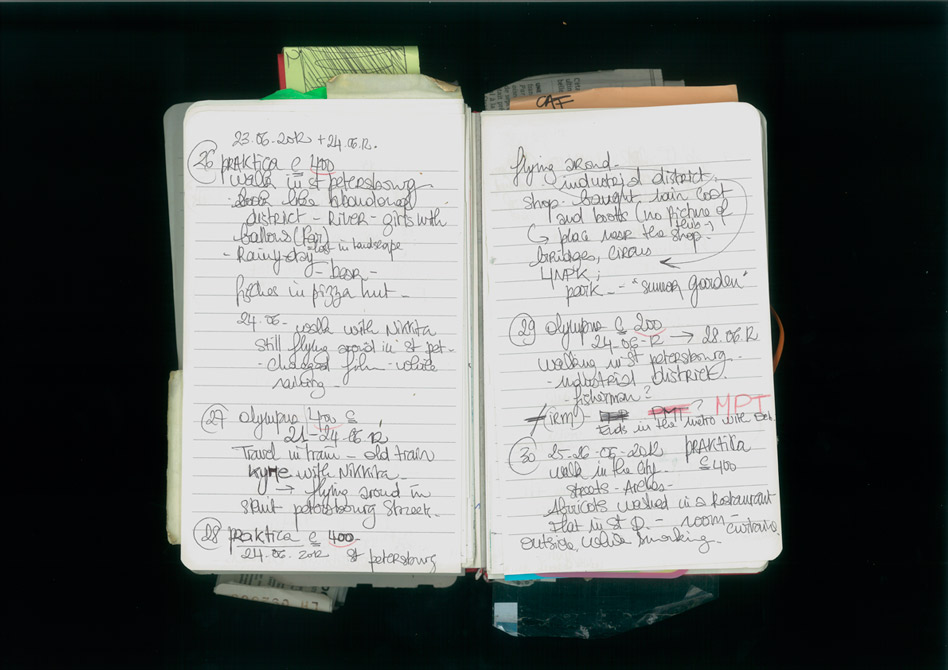 23.06.2012 + 24.06.12.
26 praktica c 400
walk in st petersbourg
like abandoned
district - River - girls with
ballons (Far)
- Rainy day - lost in landscape
- bear -
in pizza hut -
24.06- walk with Nikkita
still flying around in st pet-
- changed film - while
raining -
27 olympus 400 c
21-24-06.12
Travel in train - old train
with Nikkita -
→ flying around in
saint petersbourg streeck-
28 praktica c 400-
24.06. 2012 st petersburg
CAF
flying around -
industrial district.
shop - bought rain coat
and boots (no picture of
this -)
↳ place near the shop -
bridges, circus
park - - "summer garden"
29 olympus c 200
24-06-12 → 28.06.12
walking in st petersbourg -
- industrial district.
- fisherman?
PMT? MPT
Ends in the metro with
30 25-26-06-2012 praktika
c 400
walk in the city -
streets - Arches -
Abricots washed in a Restaurant
Flat in st P. - room -
outside, while smorking -